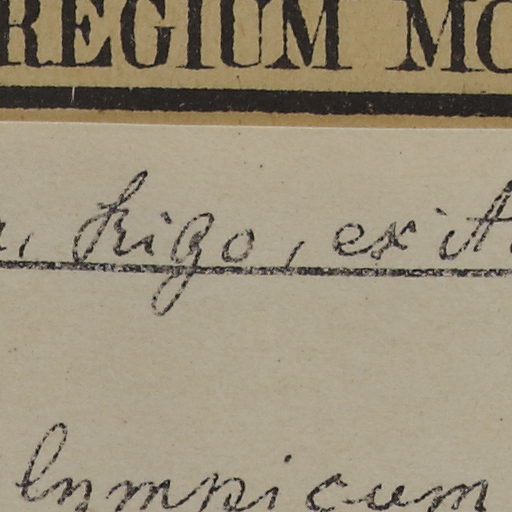 REGIUM MO
, Rigo, ex it
lympicum